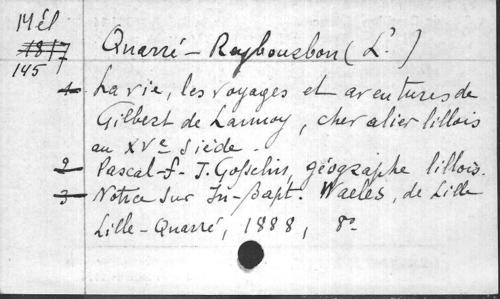 Mél
1817
145
Quarré-Reybourbon (L.)
1 La vie, les voyages et aventures de
Gilbert de Lannoy, chevalier lillois
au XVe siècle.
2 Pascal-F.-J. Gosselin, géographe lillois.
3 Notice sur Jn-Bapt. Waeles, de Lille
Lille-Quarré, 1888, 8o